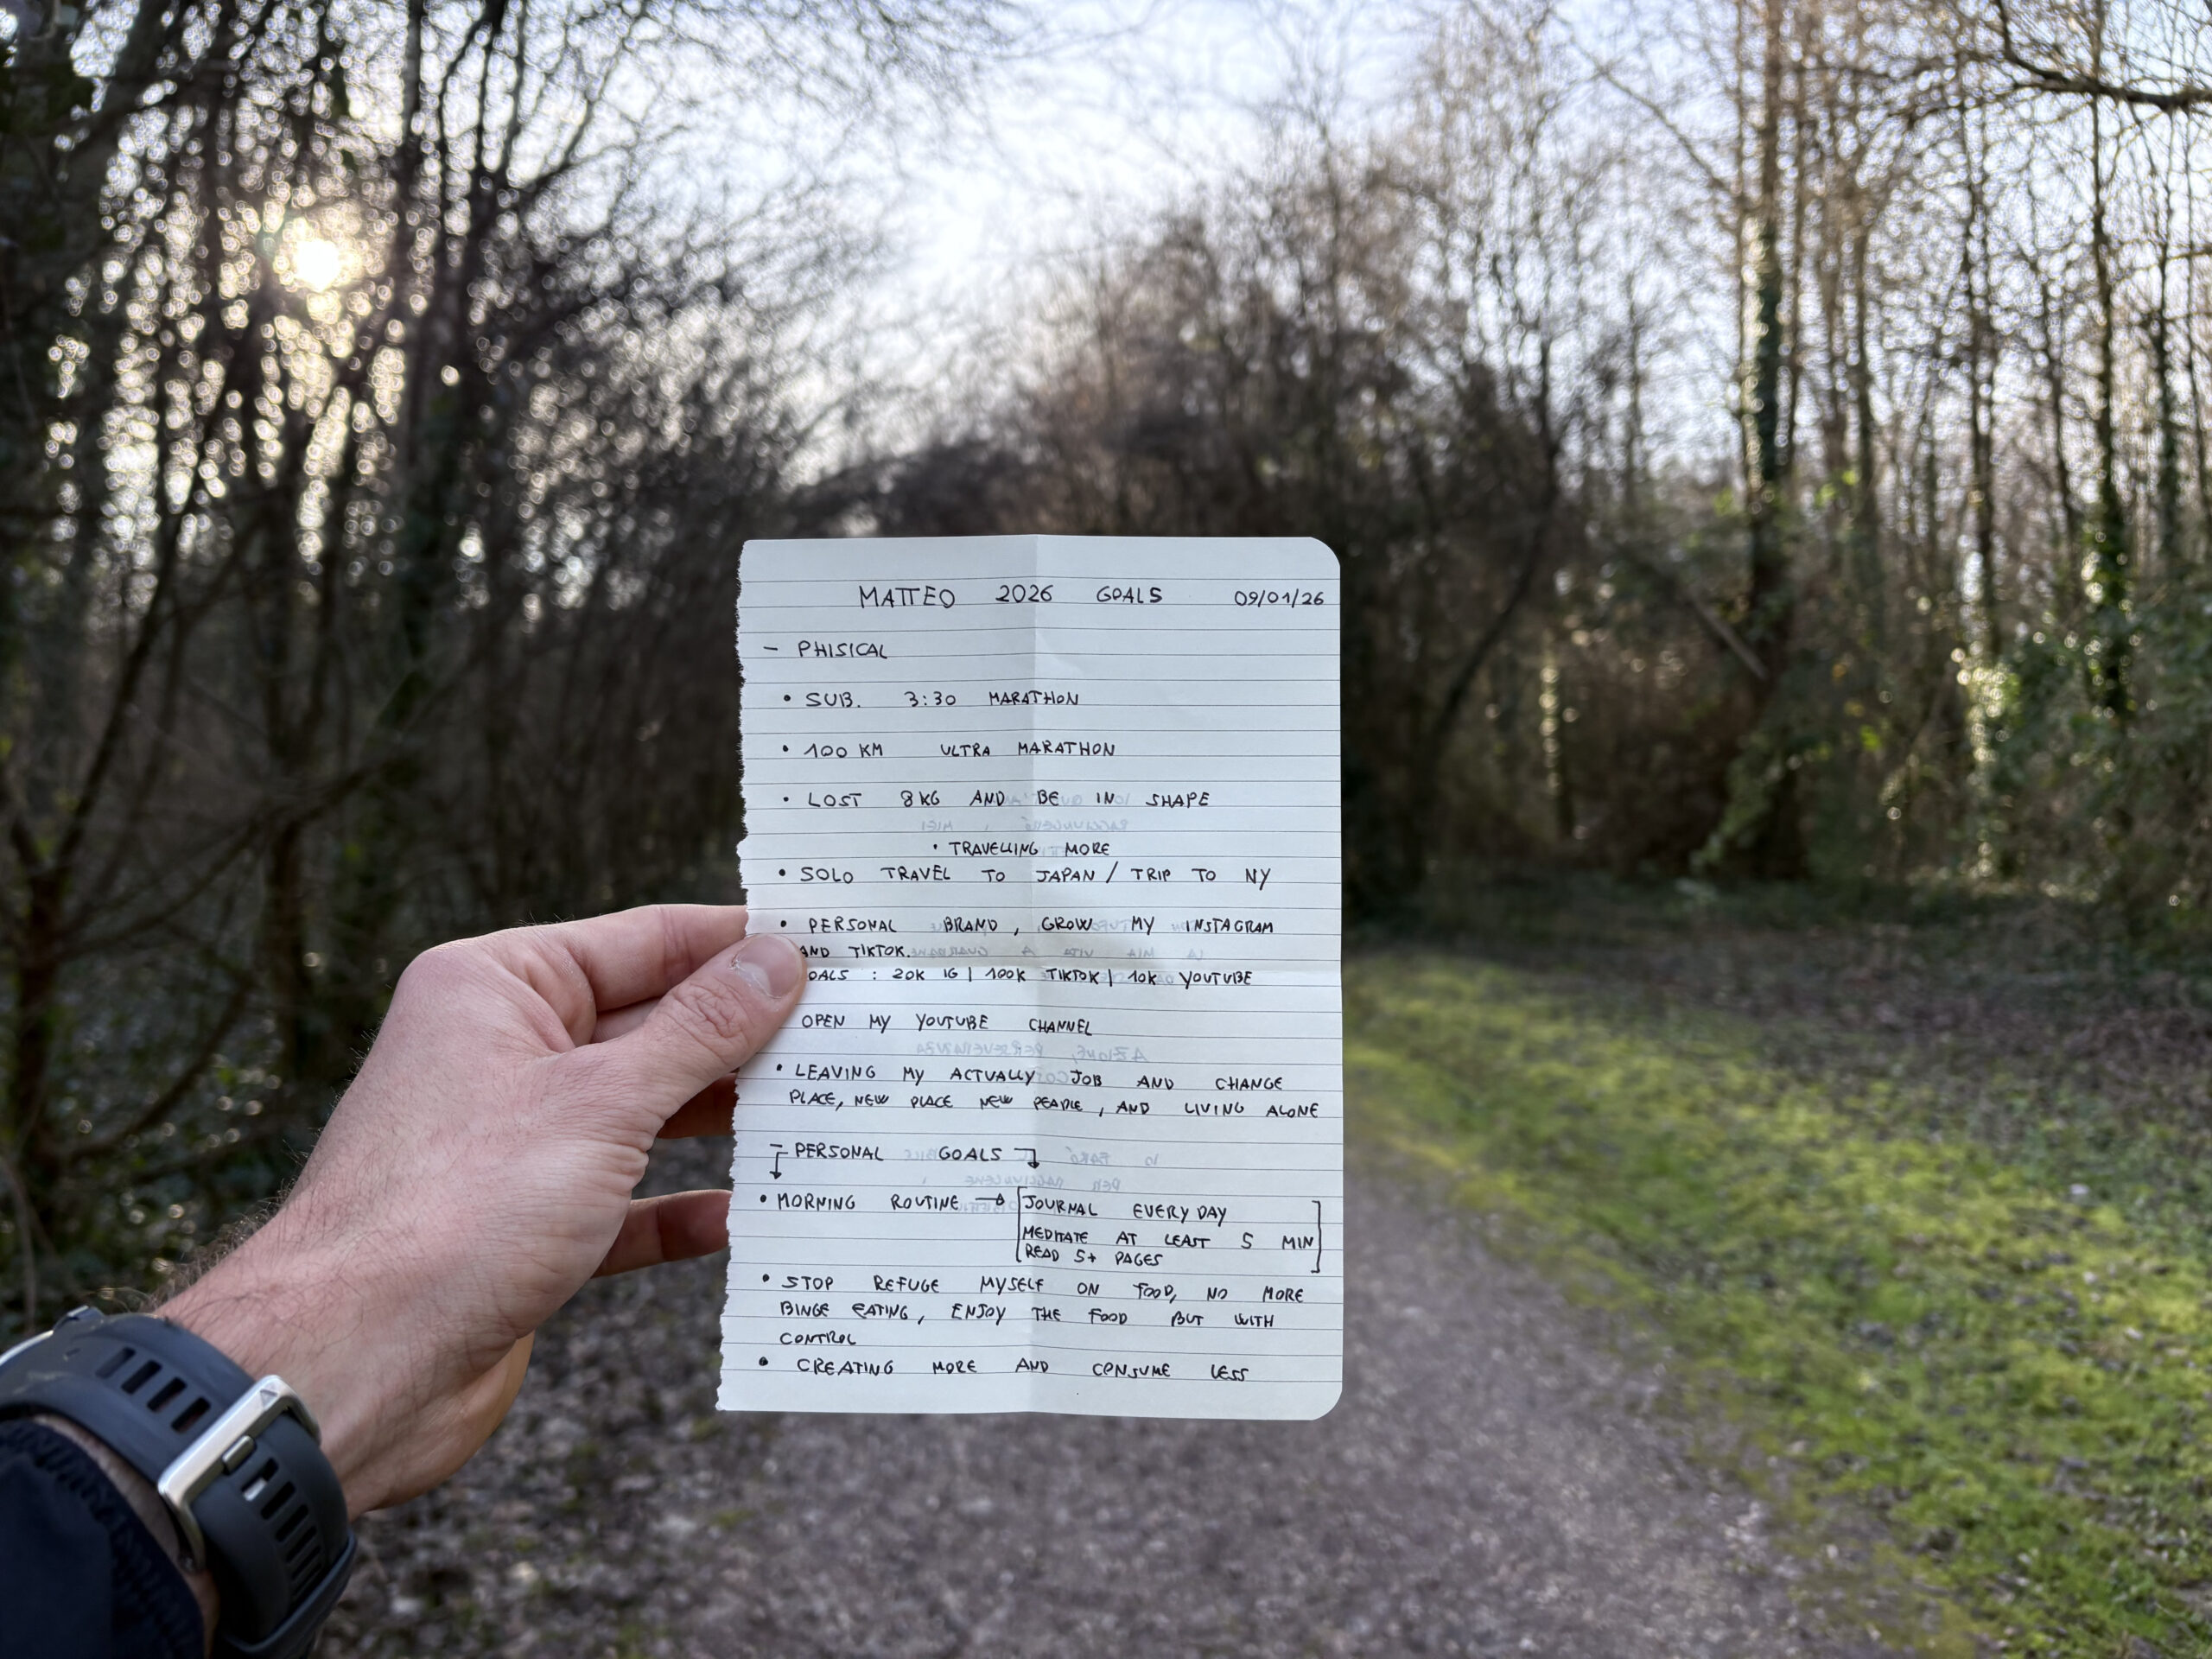 MATTEO 2026 GOALS 09/01/26
- PHISICAL
• SUB. 3:30 MARATHON
• 100 KM ULTRA MARATHON
• LOST 8KG AND BE IN SHAPE
• TRAVELLING MORE
• SOLO TRAVEL TO JAPAN / TRIP TO NY
• PERSONAL BRAND, GROW MY INSTAGRAM
AND TIKTOK.
OALS : 20K IG | 100K TIKTOK | 10K YOUTUBE
OPEN MY YOUTUBE CHANNEL
• LEAVING MY ACTUALLY JOB AND CHANGE
PLACE, NEW PLACE NEW PEAPLE, AND LIVING ALONE
- PERSONAL GOALS
• MORNING ROUTINE → [JOURNAL EVERY DAY
MEDITATE AT LEAST 5 MIN
READ 5+ PAGES]
• STOP REFUGE MYSELF ON FOOD, NO MORE
BINGE EATING, ENJOY THE FOOD BUT WITH
CONTROL
• CREATING MORE AND CONSUME LESS